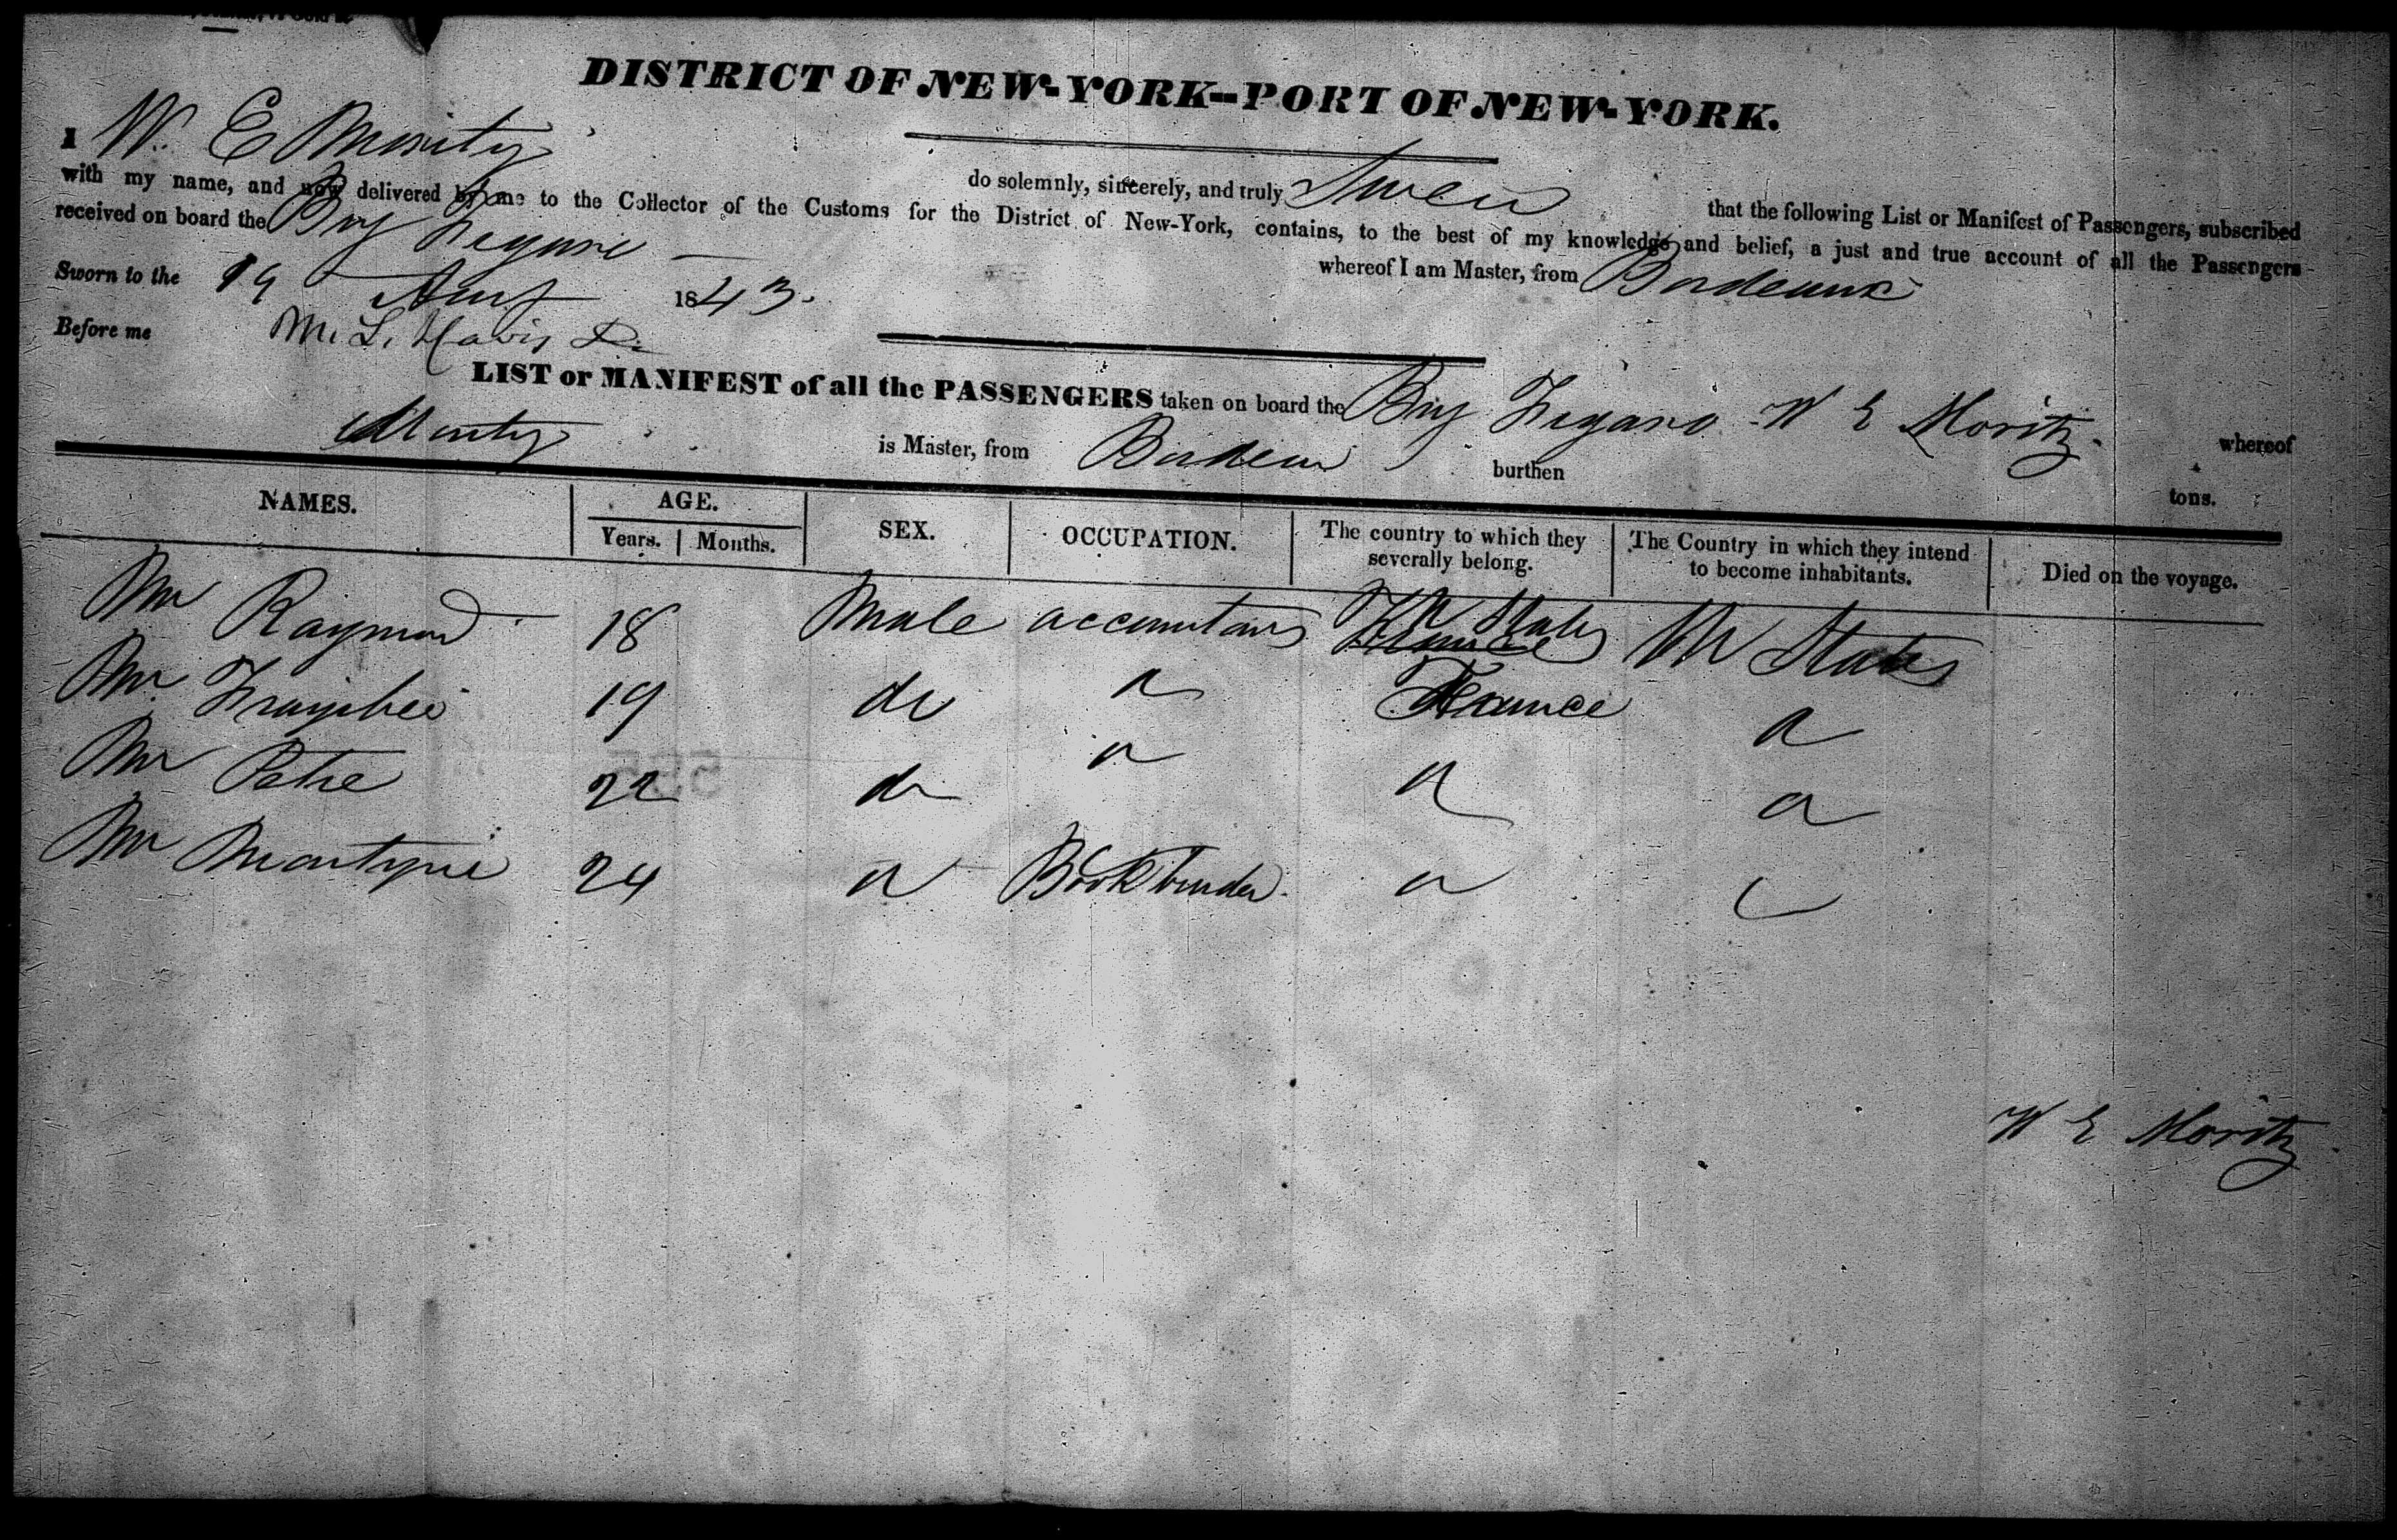 DISTRICT OF NEW-YORK--PORT OF NEW-YORK.
I W. E Moritz do solemnly, sincerely, and truly Swear that the following List or Manifest of Passengers, subscribed
with my name, and now delivered by me to the Collector of the Customs for the District of New-York, contains, to the best of my knowledge and belief, a just and true account of all the Passengers
received on board the Brig Figaro whereof I am Master, from Bordeaux
Sworn to the 19 1843.
Before me M. L. Davis
LIST or MANIFEST of all the PASSENGERS taken on board the Brig Figaro W E Moritz whereof
Moritz is Master, from Bordeaux burthen tons.
NAMES. AGE. SEX. OCCUPATION. The country to which they severally belong. The Country in which they intend to become inhabitants. Died on the voyage.
Years. Months.
Mr Raymond 18 Male accountant France U States U States
Mr 19 do " France "
Mr Petre 22 do " " "
Mr 24 " Bookbinder " "
W E Moritz